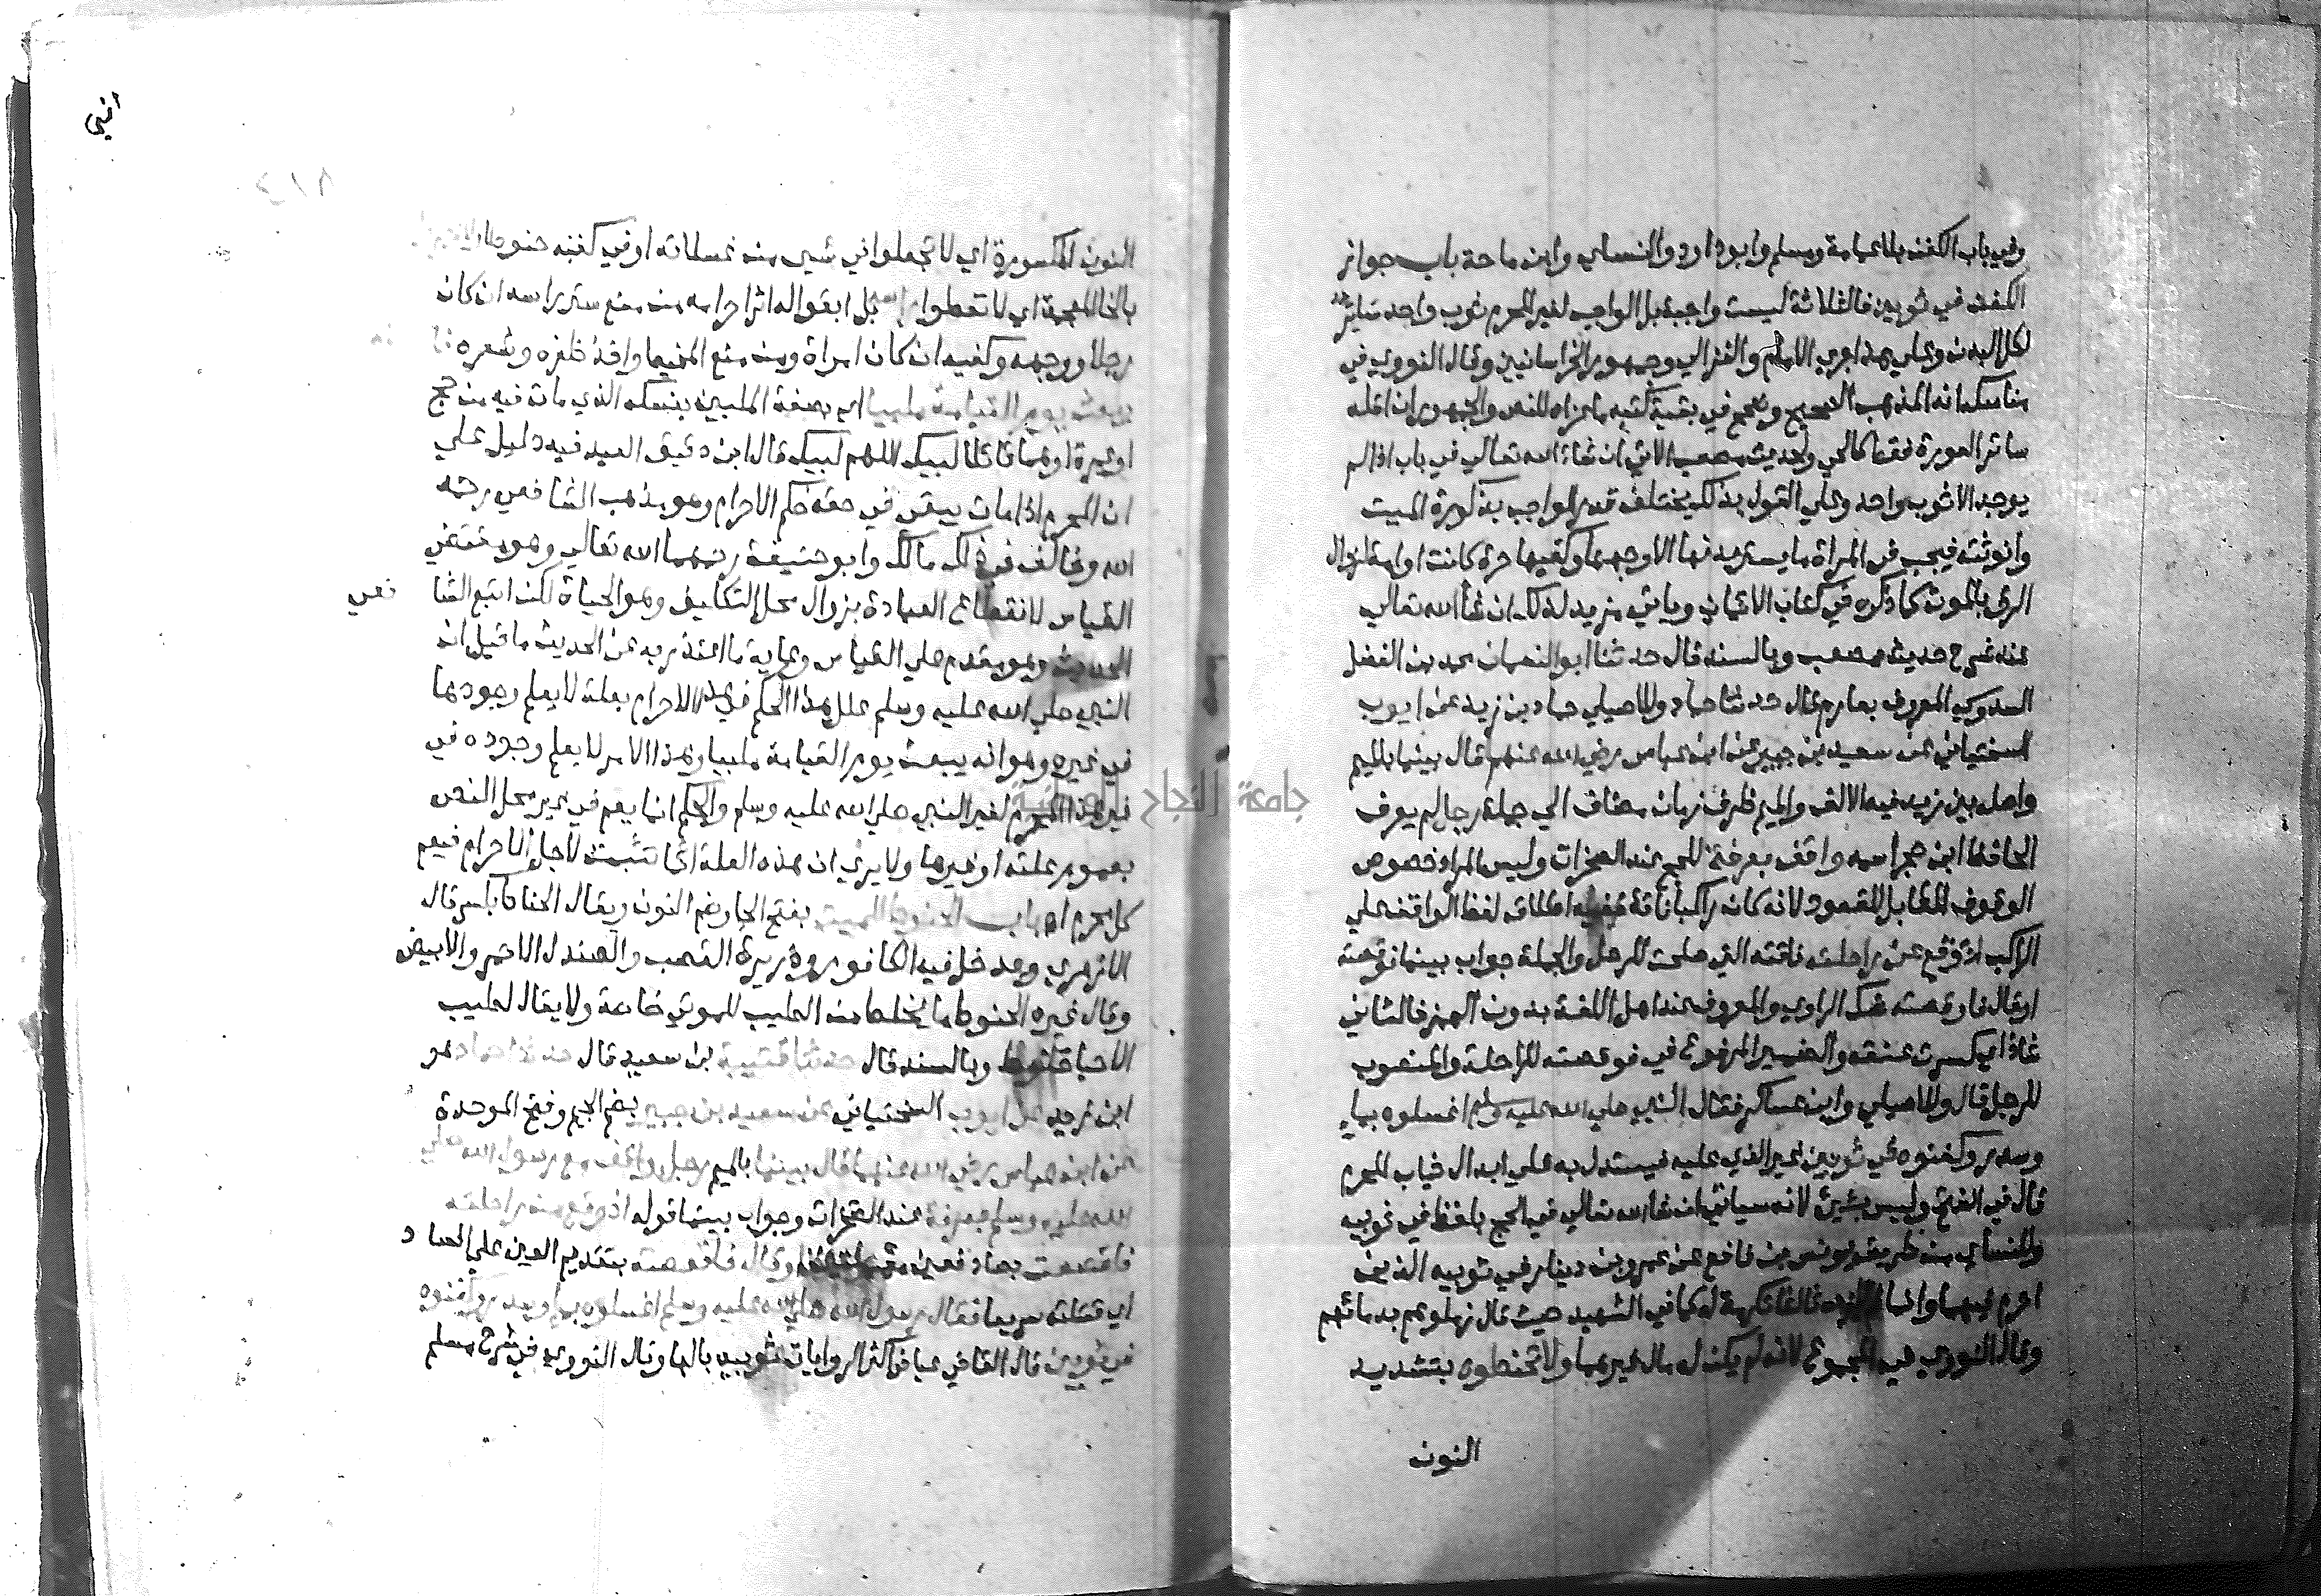 وفي باب الكفن بلا عمامة ومسلم وابو داود والنساي وابن ماجة باب جواز
الكفن في ثوبين فالثلاثة ليست واجبة بل الواجب لغير المحرم ثوب واحد ساتر
لكل البدن وعلي هذا جري الامام والغزالي وجمهور الخراسانيين وقال النووي في
مناسكه انه المذهب الصحيح وصحح في بقية كتبه ما عزاه للنص والجمهور ان اقله
ساتر العورة فقط كالحي ولحديث مصعب الاتي ان شاء الله تعالي في باب اذا لم
يوجد الا ثوب واحد وعلي القول بذلك يختلف قدر الواجب بذكورة الميت
وانوثته فيجب في المراة ما يستر بدنها الا وجهها وكفيها حرة كانت او امة لزوال
الرق بالموت كما ذكره في كتاب الايمان وياتي مزيد لذلك ان شا الله تعالي
عند شرح حديث مصعب وبالسند قال حدثنا ابو النعمان محمد بن الفضل
السدوسي المعروف بعارم قال حدثنا حماد وللاصيلي حماد بن زيد عن ايوب
السختياني عن سعيد بن جبير عن ابن عباس رضي الله عنهما قال بينما بالميم
واصله بين زيد فيه الالف والميم ظرف زمان مضاف الي جملة رجل لم يعرف
الحافظ ابن حجر اسمه واقف بعرفة للحج عند الصخرات وليس المراد خصوص
الوقوف المقابل للقعود لانه كان راكبا ناقة ففيه اطلاق لفظ الواقف علي
الراكب اذ وقع عن راحلته ناقته التي صلحت للرحل والجملة جواب بينما فوقصته
او قال فاوقصته شك الراوي والمعروف عند اهل اللغة بدون الهمز فالثاني
شاذ اي كسرت عنقه والضمير المرفوع في فوقصته للراحلة والمنصوب
للرجل قال وللاصيلي وابن عساكر فقال النبي صلي الله عليه وسلم اغسلوه بماء
وسدر وكفنوه في ثوبين غير الذي عليه فيستدل به علي ابدال ثياب المحرم
قال في الفتح وليس بشيء لانه سياتي ان شا الله تعالي في الحج بلفظ في ثوبيه
وللنساي من طريق يونس بن نافع عن عمرو بن دينار في ثوبيه الذين
احرم فيهما وانما لم يزده ثالثا تكرمة له كما في الشهيد حيث قال زملوهم بدمائهم
وقال النووي في المجموع لانه لم يكن له مال غيرهما ولا تحنطوه بتشديد
النون
النون المكسورة اي لا تجعلوا في شيء من غسلاته او في كفنه حنوطا ولا
بالخا المعجمة اي لا تغطوا راسه بل ابقوا له اثر احرامه من منع ستر راسه ان كان
رجلا ووجهه وكفيه ان كان امراة ومن منع المخيط واخذ ظفره وشعره
يبعث يوم القيامة ملبيا اي بصفة الملبين بنسكه الذي مات فيه من حج
او عمرة او هما قائلا لبيك اللهم لبيك قال ابن دقيق العيد فيه دليل علي
ان المحرم اذا مات يبقي في حقه حكم الاحرام وهو مذهب الشافعي رحمه
الله وخالف في ذلك مالك وابو حنيفة رحمهما الله تعالي وهو مقتضي
القياس لانقطاع العبادة بزوال محل التكليف وهو الحياة لكن اتبع الشا
فعي
الحديث وهو مقدم علي القياس وغاية ما اعتذر به عن الحديث ما قيل ان
النبي صلي الله عليه وسلم علل هذا الحكم في هذا الاحرام بعلة لا يعلم وجودها
في غيره وهو انه يبعث يوم القيامة ملبيا وهذا الامر لا يعلم وجوده في
غير هذا المحرم لغير النبي صلي الله عليه وسلم والحكم انما يعم في غير محل النص
بعموم علته او غيرها ولا يري ان هذه العلة انما تثبت لاجل الاحرام فيعم
كل محرم اه باب الحنوط للميت بفتح الحا وضم النون ويقال الحناط بالكسر قال
الازهري ويدخل فيه الكافور وذريرة القصب والصندل الاحمر والابيض
وقال غيره الحنوط ما يخلط من الطيب للموتي خاصة ولا يقال لطيب
الاحيا حنوط وبالسند قال حدثنا قتيبة بن سعيد قال حدثنا حماد هو
ابن زيد عن ايوب السختياني عن سعيد بن جبير بضم الجيم وفتح الموحدة
عن ابن عباس رضي الله عنهما قال بينما بالميم رجل واقف مع رسول الله صلي
الله عليه وسلم بعرفة عند الصخرات وجواب بينما قوله اذ وقع من راحلته
فاقصعته بصاد فعين وقال فاقعصته بتقديم العين علي الصاد
اي قتلته سريعا فقال رسول الله صلي الله عليه وسلم اغسلوه بماء وسدر وكفنوه
في ثوبين قال القاضي عياض اكثر الروايات ثوبيه بالها وقال النووي في شرح مسلم
جامعة النجاح الوطنية